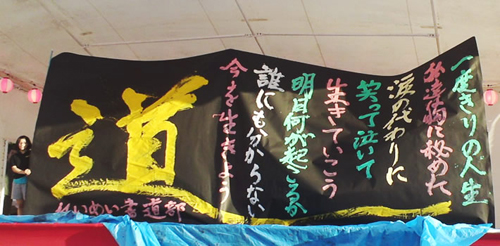 一度きりの人生
私達胸に秘めた
涙の代わりに
笑って泣いて
生きていこう
明日何が起こるか
誰にも分からない
今を生きよう
道
めい書道部